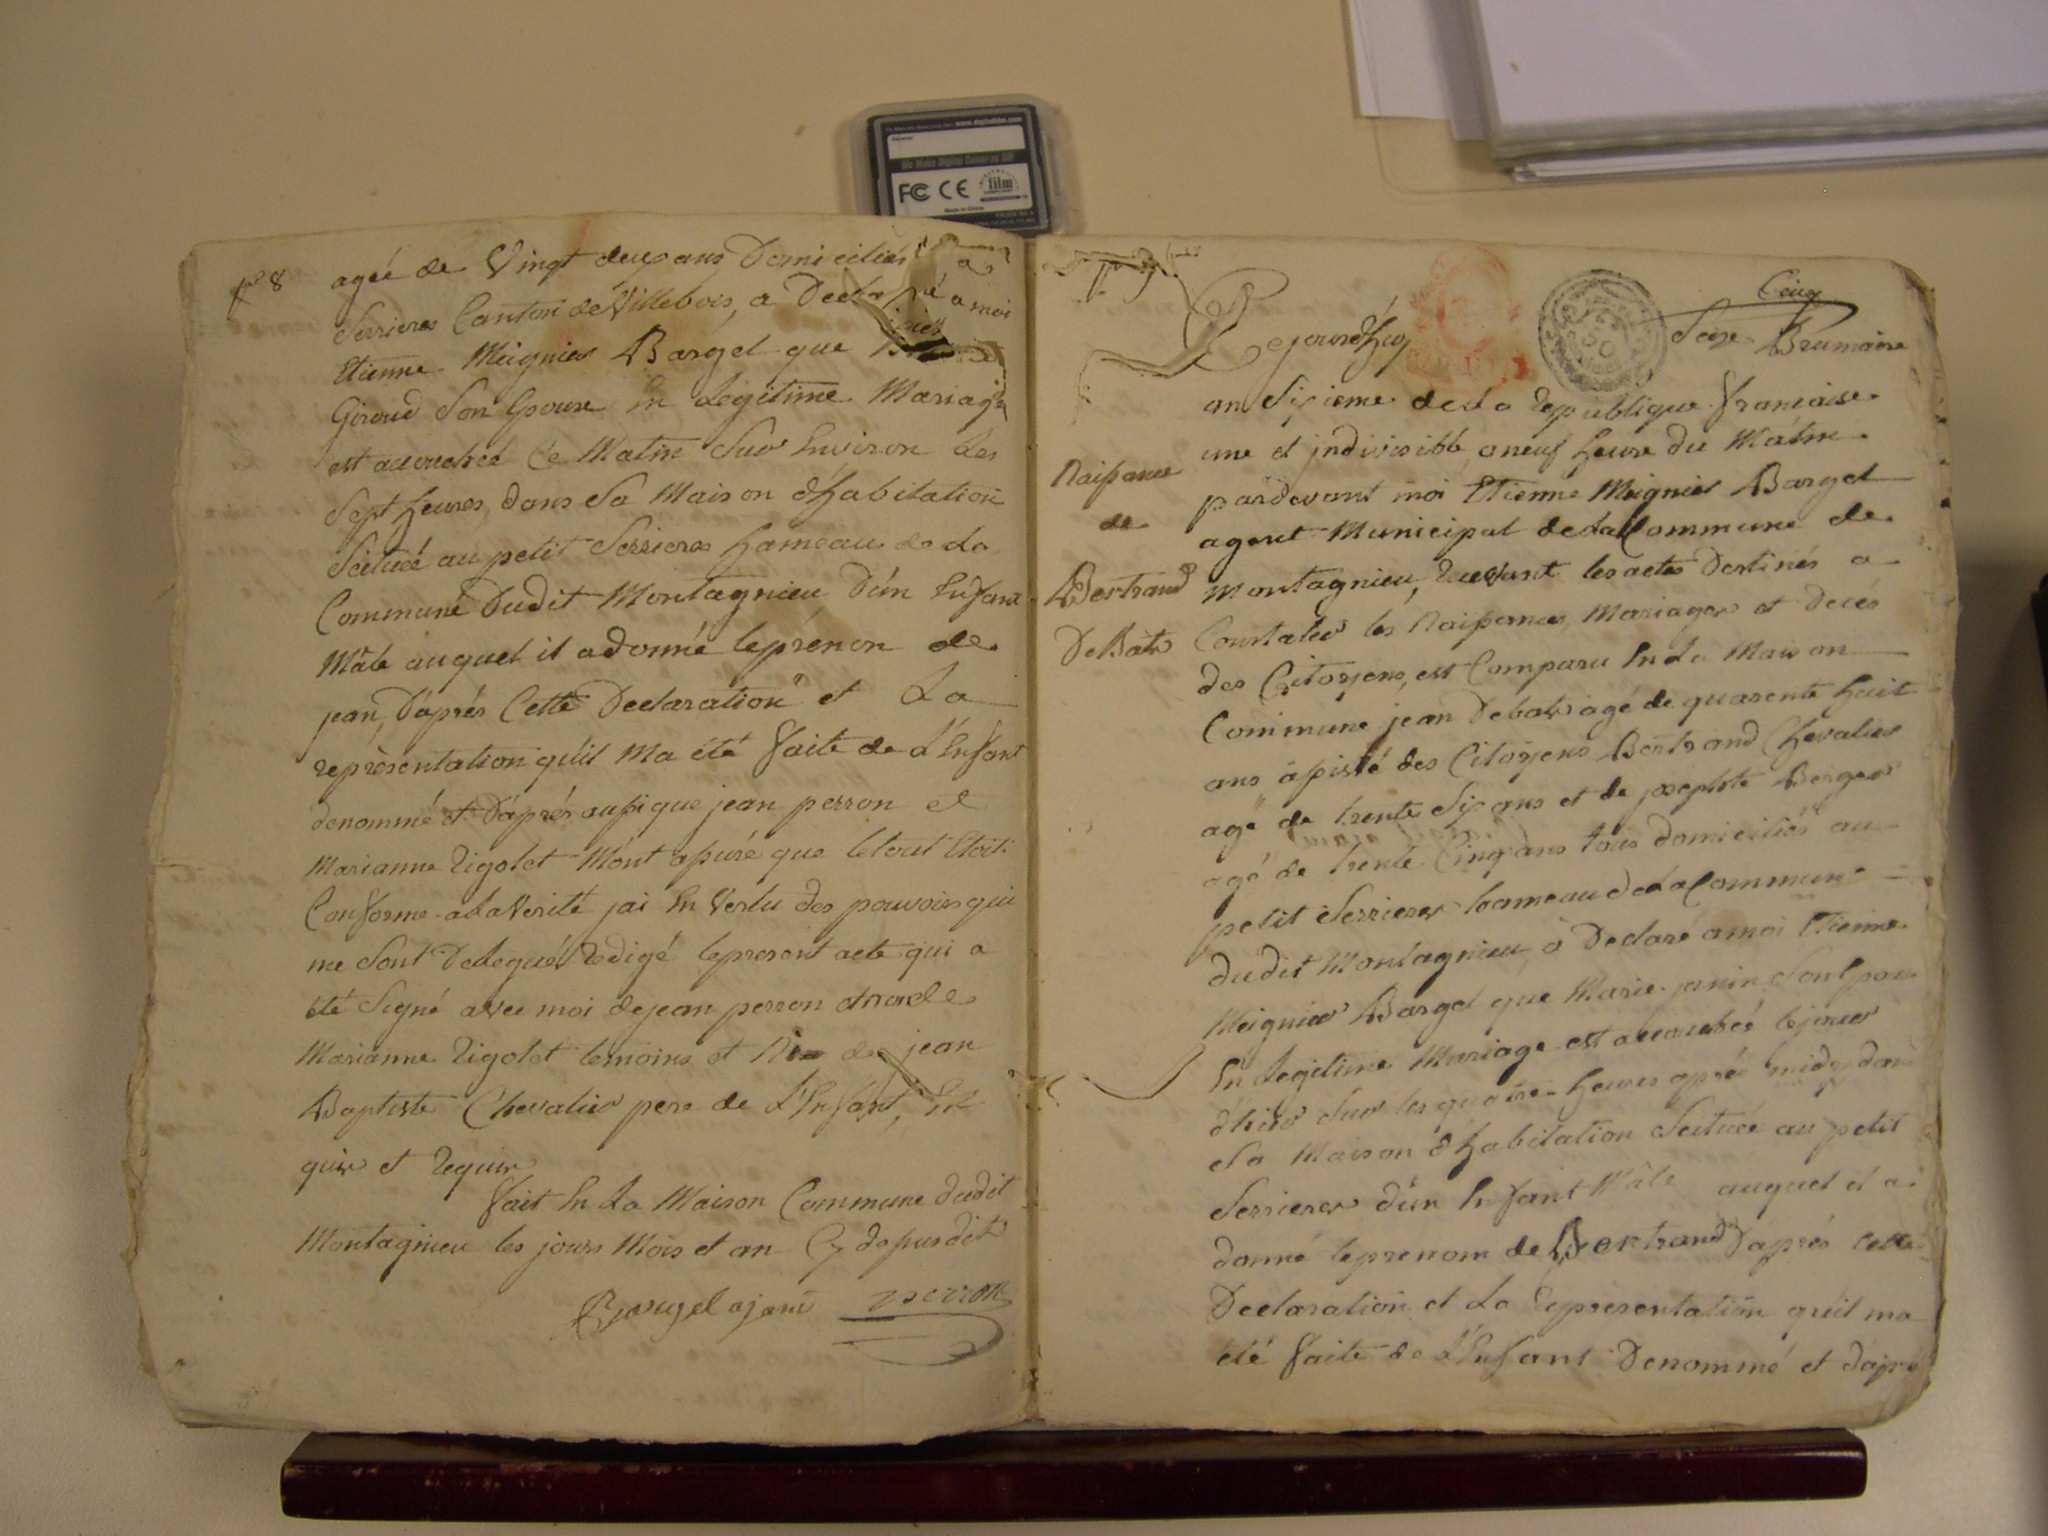 We Make Digital Cameras Sing
FC CE film
Made in China
8
ageé de Vingt deux ans Domiciliés a
Serrieres Canton de Villebois, a Declaré a moi
Etienne Meignier Bargel que
Giroud Son Epouse En Legitime Mariage
est accouchée Ce Matin Sur Environ Les
Sept heures, dans Sa Maison d'habitation
Scituée au petit Serrieres hameau de La
Commune Dudit Montagnieu D'un Enfant
Mâle auquel il a donné le prénon de
jean, D'aprés Cette Declaration et La
représentation qu'il Ma été faite de L'Enfant
denommé et D'aprés aussi que jean perron et
Marianne Rigolet M'ont assuré que le tout Etoit
Conforme a La Verité jai En Vertu des pouvoirs qui
me Sont Delegués Redigé le present acte qui a
été Signé avec moi de jean perron et non de
Marianne Rigolet temoins et Ni de jean
Baptiste Chevalier pere de L'Enfant,
quis et Requis
fait En La Maison Commune dudit
Montagnieu les jours Mois et an Cy dessus dit
Bargel ajant perron
Cinq
Cejourd'huy Seize Brumaire
an Sixieme de La Republique francaise
une et jndivisible a neuf heure du Matin
pardevant moi Etienne Meignier Bargel
agent Municipal de La Commune de
Montagnieu, Recevant les actes Destinés a
Constater les Naissances, Mariages et Decés
des Citoyens, est Comparu En La Maison
Commune jean Debats agé de quarente huit
ans assisté des Citoyens Bertrand Chevalier
agé de trente Six ans et de josephte Berger
agé de trente Cinq ans tous domiciliés au
petit Serrieres hameau de La Commune
dudit Montagnieu, à Declaré a moi Etienne
Meignier Bargel que Marie janin Son Epouse
En Legitime Mariage est accouchée le jour
d'hier Sur les quatre heures aprés midy dans
Sa Maison d'habitation Scituée au petit
Serrieres d'un Enfant Mâle auquel il a
donné le prenom de Bertrand D'aprés cette
Declaration et La Representation qu'il ma
été faite de L'Enfant Denommé et d'aprés
Naissance
de
Bertrand
DeBats